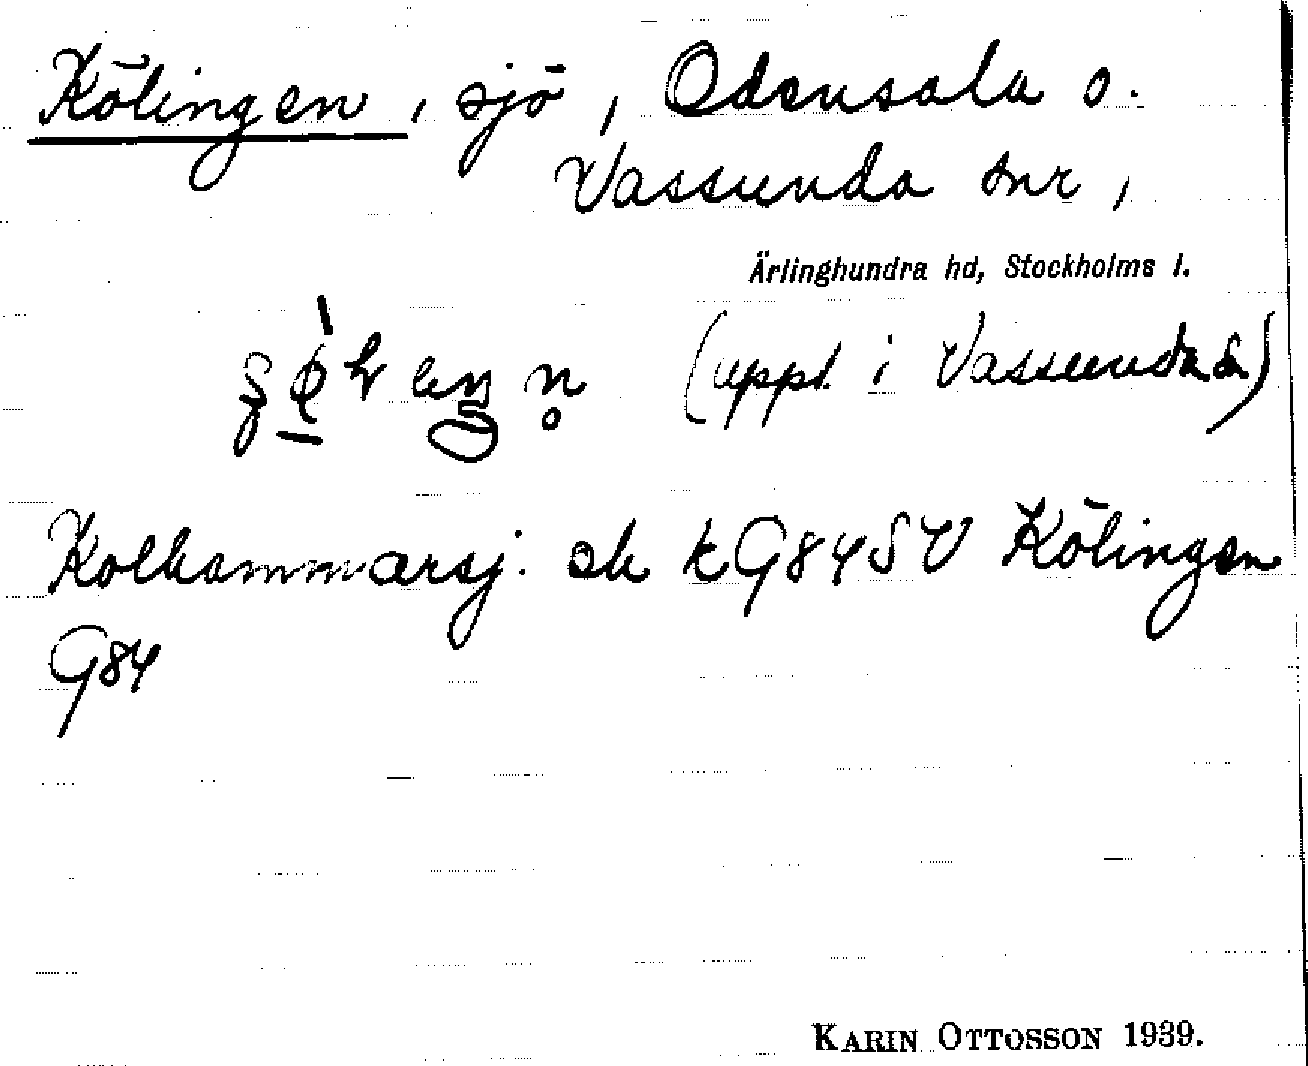 Kölingen, sjö, Odensala o.
Vassunda snr,
Ärlinghundra hd, Stockholms l.
(uppt. i Vassunda sn)
Kolhammarsj. ek k G84SV Kölingen
G84
KARIN OTTOSSON 1939.